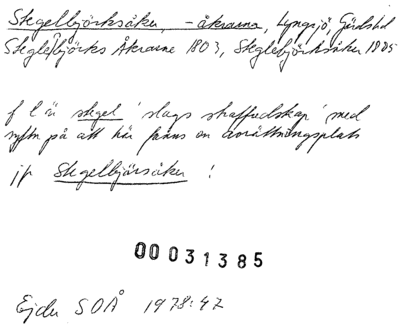 Stegelbjörksåker, -åkrarna, Lyngsjö, Gärds hd
Stegle(?)björks Åkrarne 1803, Steglebjörksåker 1805
f l är stegel 'slags straffredskap' med
syftn på att här fanns en avrättningsplats
jfr Stegelbjärsåker !
00031385
Ejder SOÅ 1978:47